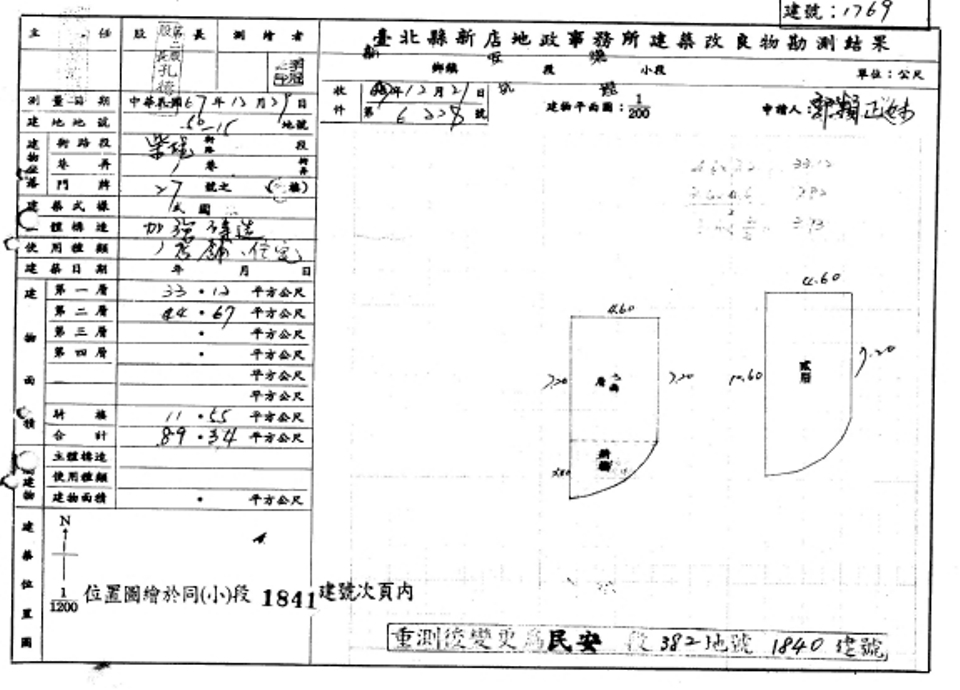 建號：1769
主任
股長
測繪者
臺北縣新店地政事務所建築改良物勘測結果
鄉鎮 段 小段 單位：公尺
收件 年12月21日
第 6228 號
建物平面圖：1/200
申請人：
測量日期 中華民國67年12月29日
建地地號 56-15 地號
建物坐落 街路段 街路 段
巷弄 巷 弄
門牌 27 號之 (樓)
建築式樣 式國
主體構造 加強磚造
使用種類 店舖、住宅
建築日期 年 月 日
建物面積
第一層 33.12 平方公尺
第二層 44.67 平方公尺
第三層 . 平方公尺
第四層 . 平方公尺
平方公尺
平方公尺
騎樓 11.55 平方公尺
合計 89.34 平方公尺
主體構造
使用種類
建物面積 . 平方公尺
4.60
7.20
7.20
騎樓
4.60
10.60
貳層
7.20
建築位置圖
N
1/1200
位置圖繪於同(小)段 1841建號次頁內
重測後變更為民安 段 382地號 1840 建號